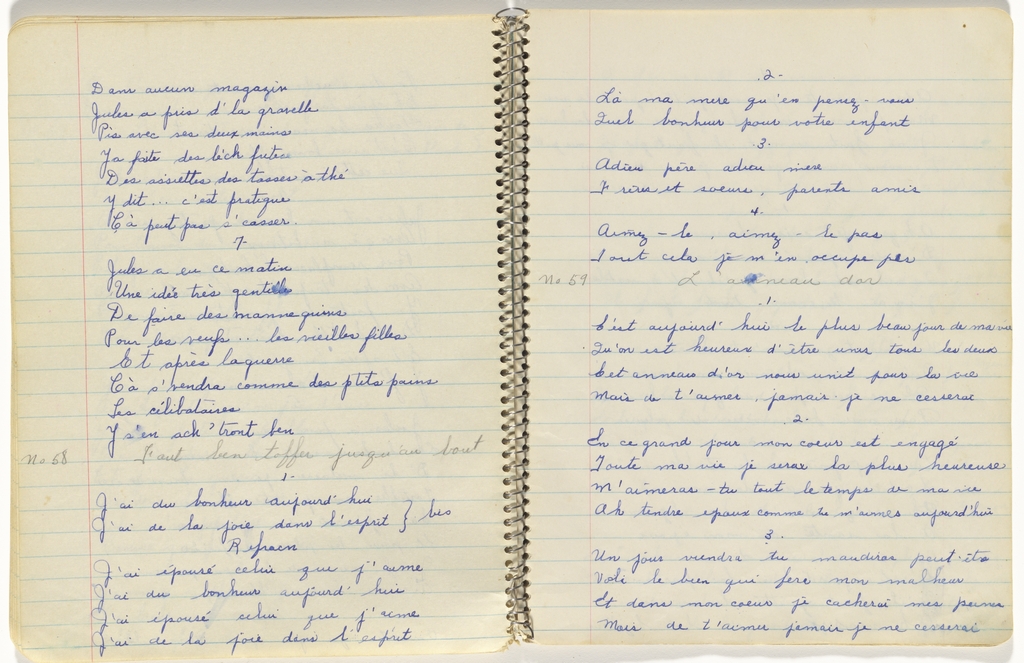 Dans aucun magazin
Jules a pris d'la gravelle
Pis avec ses deux mains
Ya faite des
Des assiettes des tasses à thé
Y dit... c'est pratique
Çà peut pas s'casser
7-
Jules a eu ce matin
Une idée très gentille
De faire des mannequins
Pour les veufs... les vieilles filles
Et après laguerre
Çà s'vendra comme des ptits pains
Les célibataires
Y s'en ach'tront ben
No 58 Faut ben toffer jusqu'au bout
1-
J'ai du bonheur aujourd'hui
J'ai de la joie dans l'esprit } bis
Refrain
J'ai épousé celui que j'aime
J'ai du bonheur aujourd'hui
J'ai épousé celui que j'aime
J'ai de la joie dans l'esprit
.2-
Là ma mere qu'en pensez-vous
Quel bonheur pour votre enfant
.3.
Adieu père adieu mere
Freres et soeurs, parents amis
4-
Aimez-le, aimez-le pas
Tout cela je m'en occupe pas
No 59 L'anneau dor
.1.
C'est aujourd'hui le plus beau jour de ma vie
Qu'on est heureux d'être unis tous les deux
Cet anneau d'or nous unit pour la vie
Mais de t'aimer, jamais je ne cesserai
.2-
En ce grand jour mon coeur est engagé
Toute ma vie je serai la plus heureuse
M'aimeras-tu tout le temps de ma vie
Ah tendre epoux comme tu m'aimes aujourd'hui
3.
Un jour viendra tu maudiras peut-être
Voti le bien qui fera mon malheur
Et dans mon coeur je cacherai mes peines
Mais de t'aimer jamais je ne cesserai